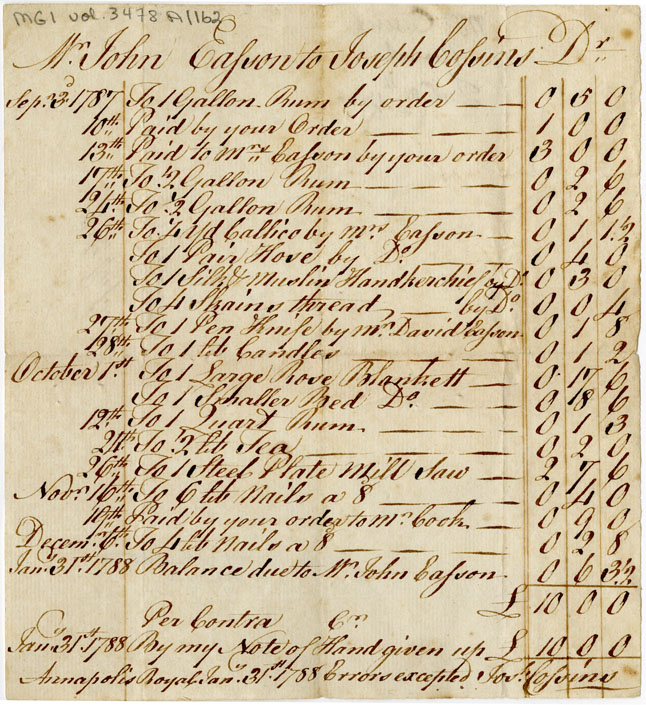 MG1 vol. 3478 A/162
Mr. John Easson to Joseph Cossins Dr.
Sep. 3d. 1787 To 1 Gallon Rum by order 0 5 0
10th. Paid by your Order 1 0 0
13th. Paid to Mrs. Easson by your order 3 0 0
17th. To ½ Gallon Rum 0 2 6
24th. To ½ Gallon Rum 0 2 6
26th. To ¼ Yd Callico by Mrs. Easson 0 1 1½
To 1 Pair Hose by Do. 0 4 0
To 1 Silk & Muslin Handkerchief by Do. 0 3 0
To 4 Skains thread by Do. 0 0 4
27th. To 1 Pen Knife by Mr. David Easson 0 1 8
28th. To 1 lb Candles 0 1 2
October 1st. To 1 Large Rose Blankett 0 17 6
To 1 Smaller Bed Do. 0 18 6
12th. To 1 Quart Rum 0 1 3
21st. To ½ lb Tea 0 2 0
26th. To 1 Steel Plate Mill Saw 2 7 6
Novr. 16th. To 6 lb Nails a 8 0 4 0
19th. Paid by your order to Mr. Cook 0 9 0
Decem. 6th. To 4 lb Nails a 8 0 2 8
Jany. 31st. 1788 Balance due to Mr. John Easson 0 6 3½
£ 10 0 0
Per Contra Cr.
Jany. 31st. 1788 By my Note of Hand given up £ 10 0 0
Annapolis Royal Jany. 31st. 1788 Errors excepted Jos. Cossins